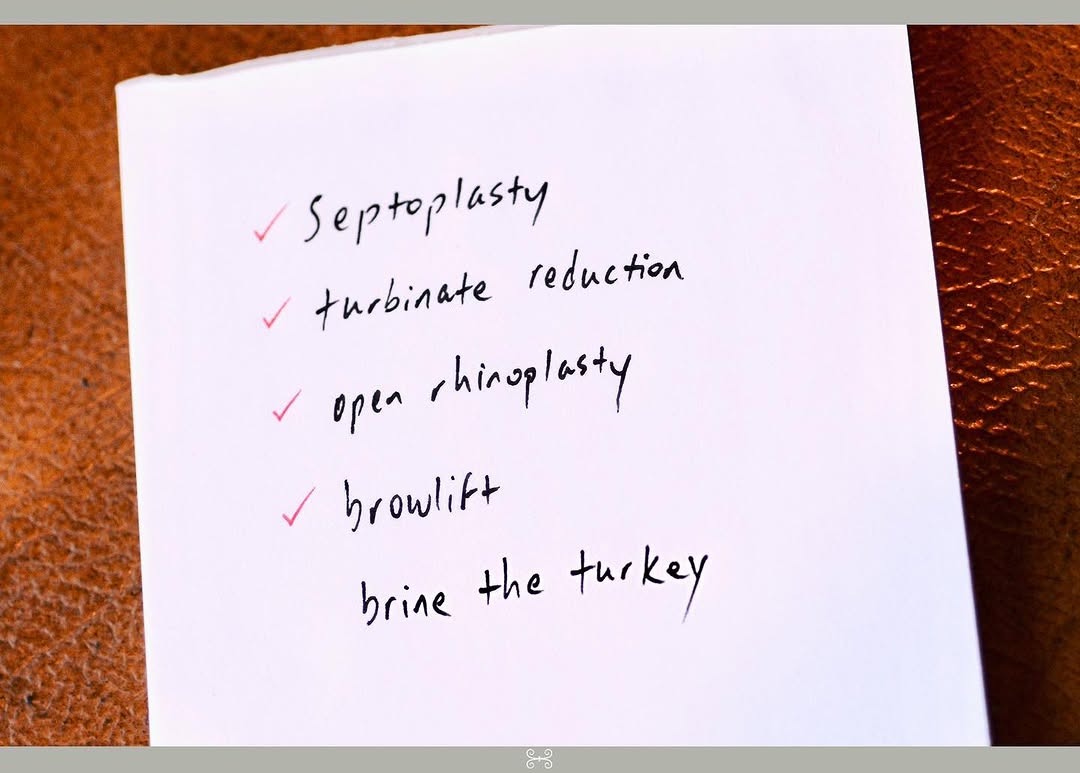 ✓ Septoplasty
✓ turbinate reduction
✓ open rhinoplasty
✓ browlift
brine the turkey